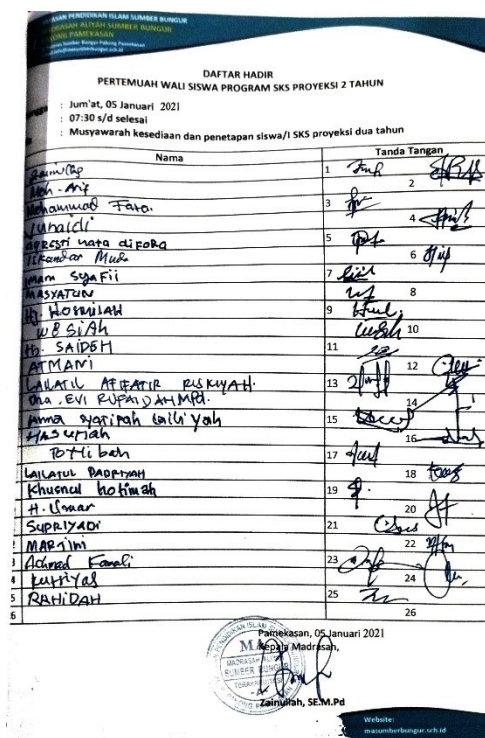 PENDIDIKAN ISLAM SUMBER BUNGUR
MADRASAH ALIYAH SUMBER BUNGUR
PAMEKASAN
DAFTAR HADIR
PERTEMUAH WALI SISWA PROGRAM SKS PROYEKSI 2 TAHUN
: Jum'at, 05 Januari 2021
: 07:30 s/d selesai
: Musyawarah kesediaan dan penetapan siswa/I SKS proyeksi dua tahun
Nama Tanda Tangan
1
Moh. Arif 2
Mohammad Fara. 3
Junaidi 4
nata difora 5
Iskandar Muda 6
Imam Syafii 7
MASYATUN 8
Hj. HOSNIYAH 9
WESIAH 10
Hj. SAIDEH 11
ATMANI 12
LAILATIL AFIFATIR RISKIYAH. 13
Dra. EVI RUFAIDAH MPd. 14
Anna syaripah lailiyah 15
HASURIAH 16
Totlibah 17
LAILATUL BADRIYAH 18
Khusnul hotimah 19
H. Umar 20
SUPRIYADI 21
MARTINI 22
Achmad Fauzi 23
24
RAHIDAH 25
26
Pamekasan, 05 Januari 2021
Kepala Madrasah,
Zainullah, SE.M.Pd
Website:
masumberbungur.sch.id